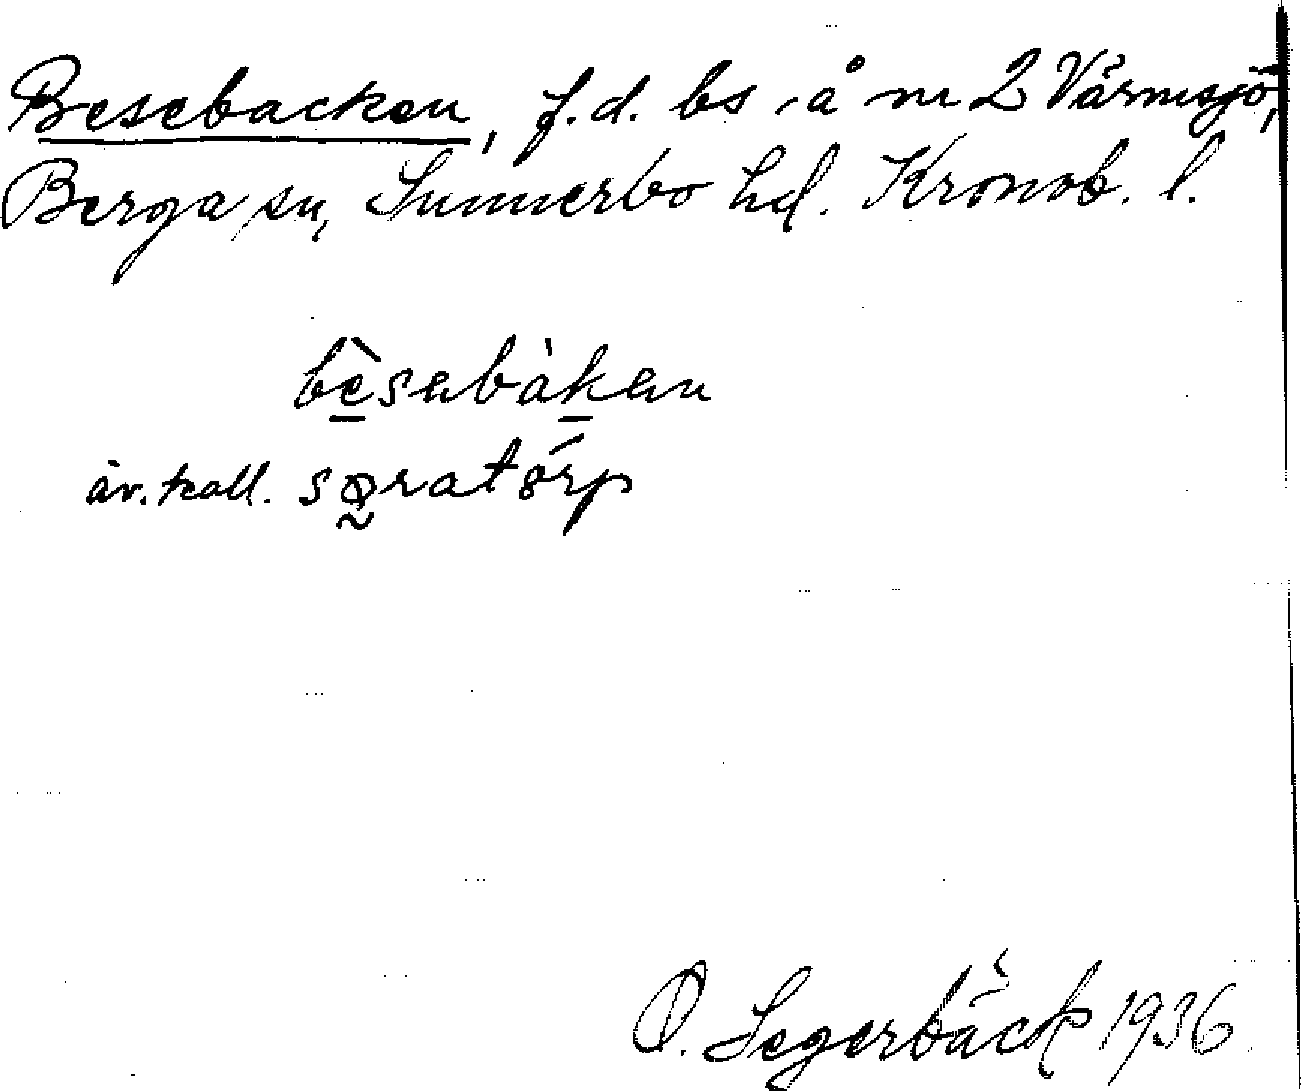 Besebacken, f.d. bs å nr 2 Värmsjö,
Berga sn, Sunnerbo hd. Kronob. l.
bèsabàkan
äv. kall. søratórp
O. Segerbäck 1936